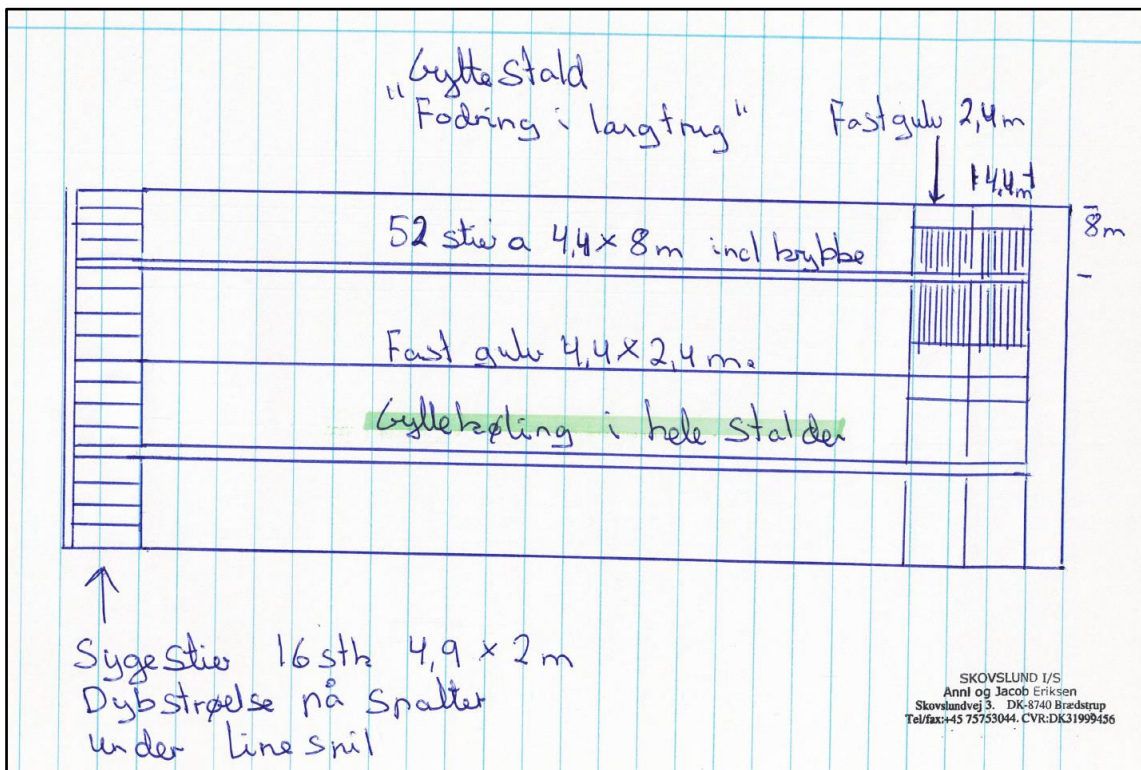 Gyltestald
"Fodring i langtrug"
Fastgulv 2,4m
4,4m
8m
52 stier a 4,4 × 8m incl krybbe
Fast gulv 4,4 × 2,4 m.
Gyllekøling i hele stalden
Sygestier 16 stk 4,9 × 2 m
Dybstrøelse på spalter
under linespil
SKOVSLUND I/S
Anni og Jacob Eriksen
Skovslundvej 3. DK-8740 Brædstrup
Tel/fax:+45 75753044. CVR:DK31999456